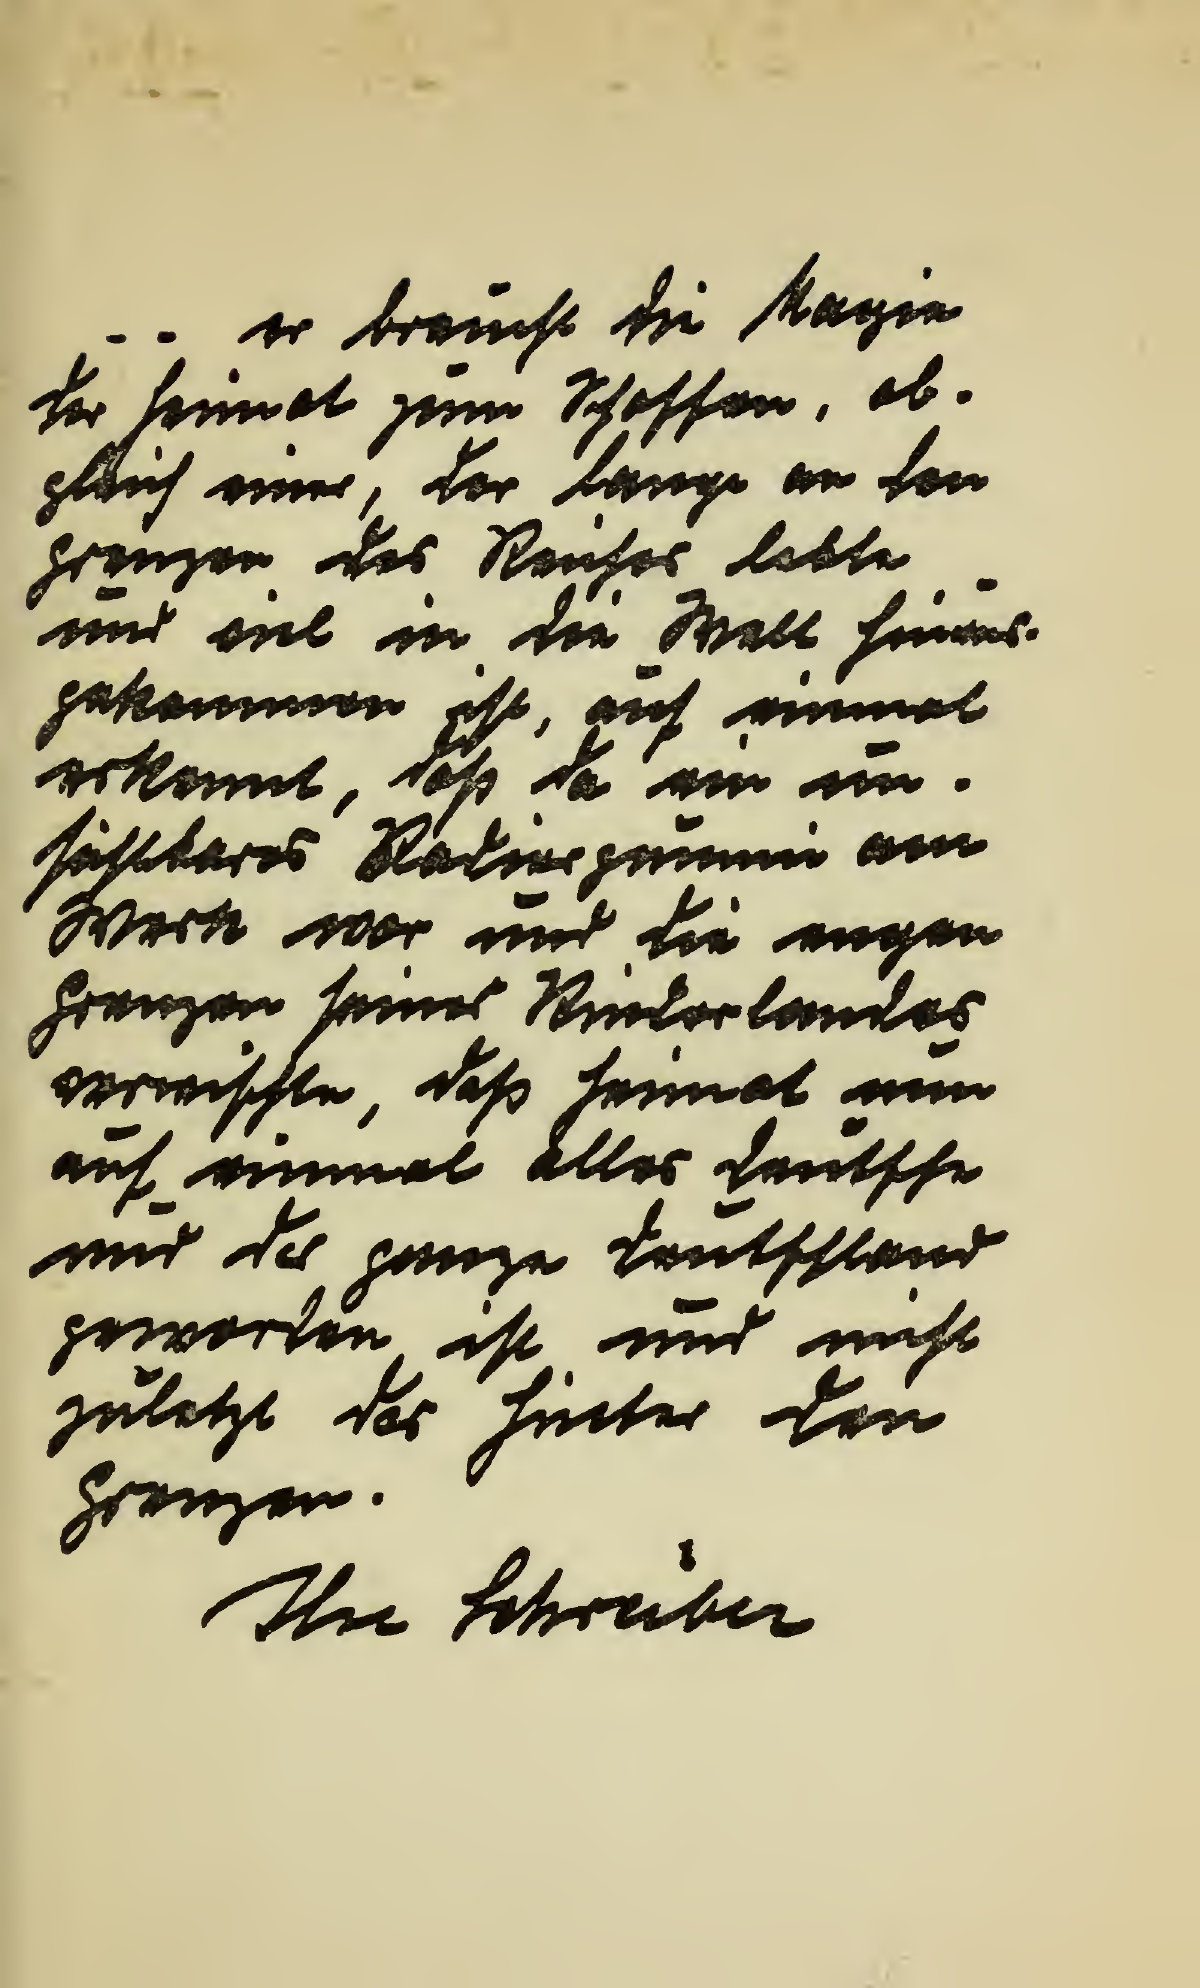 .. er braucht die Magie
der Heimat zum Schaffen, ob-
gleich einer, der lange an den
Grenzen des Reiches lebte
und viel in die Welt hinaus-
gekommen ist, auf einmal
erkennt, daß da ein un-
sichtbares Radiergummi am
Werk war und die engen
Grenzen seines Kinderlandes
verwischte, daß Heimat nun
auf einmal alles Deutsche
und das ganze Deutschland
geworden ist und nicht
zuletzt das hinter den
Grenzen.
Ilse Schreiber